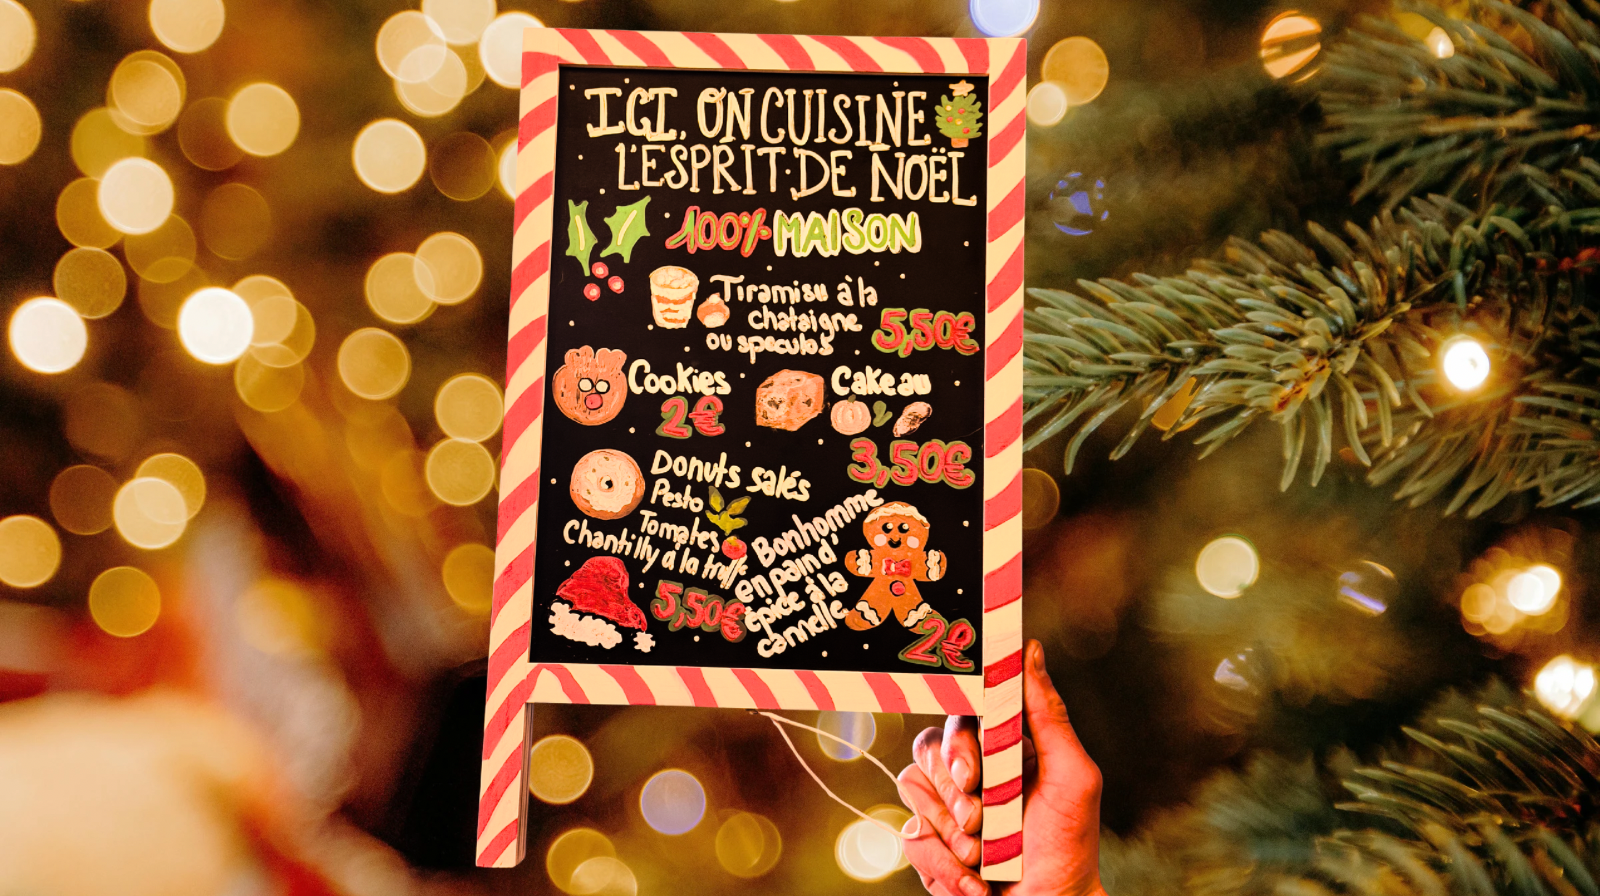 ICI, ON CUISINE
L'ESPRIT DE NOËL
100% MAISON
Tiramisu à la
chataigne
ou speculos
5,50€
Cookies
2€
Cakeau
3,50€
Donuts salés
Pesto
Tomates
Chantilly à la truffe
5,50€
Bonhomme
en pain d'
épice à la
cannelle
2€